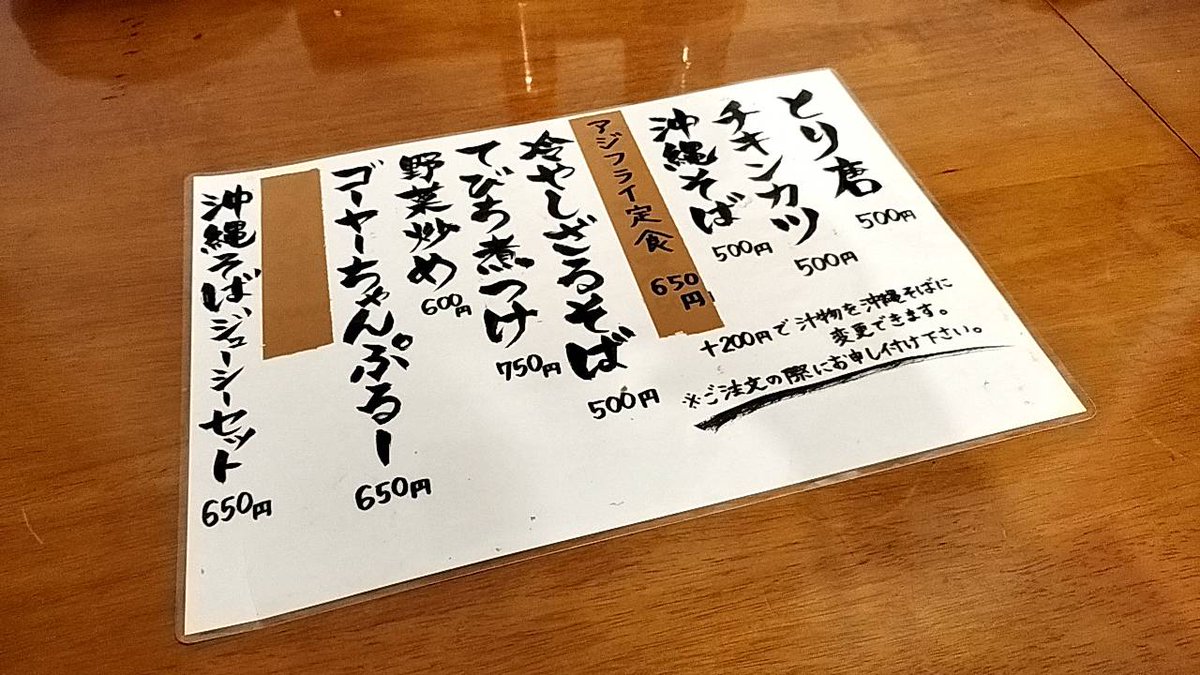 とり唐
500円
チキンカツ
500円
沖縄そば
500円
アジフライ定食
650円
冷やしざるそば
500円
てびち煮つけ
750円
野菜炒め
600円
ゴーヤーちゃんぷるー
650円
沖縄そばジューシーセット
650円
+200円で汁物を沖縄そばに
変更できます。
※ご注文の際にお申し付け下さい。